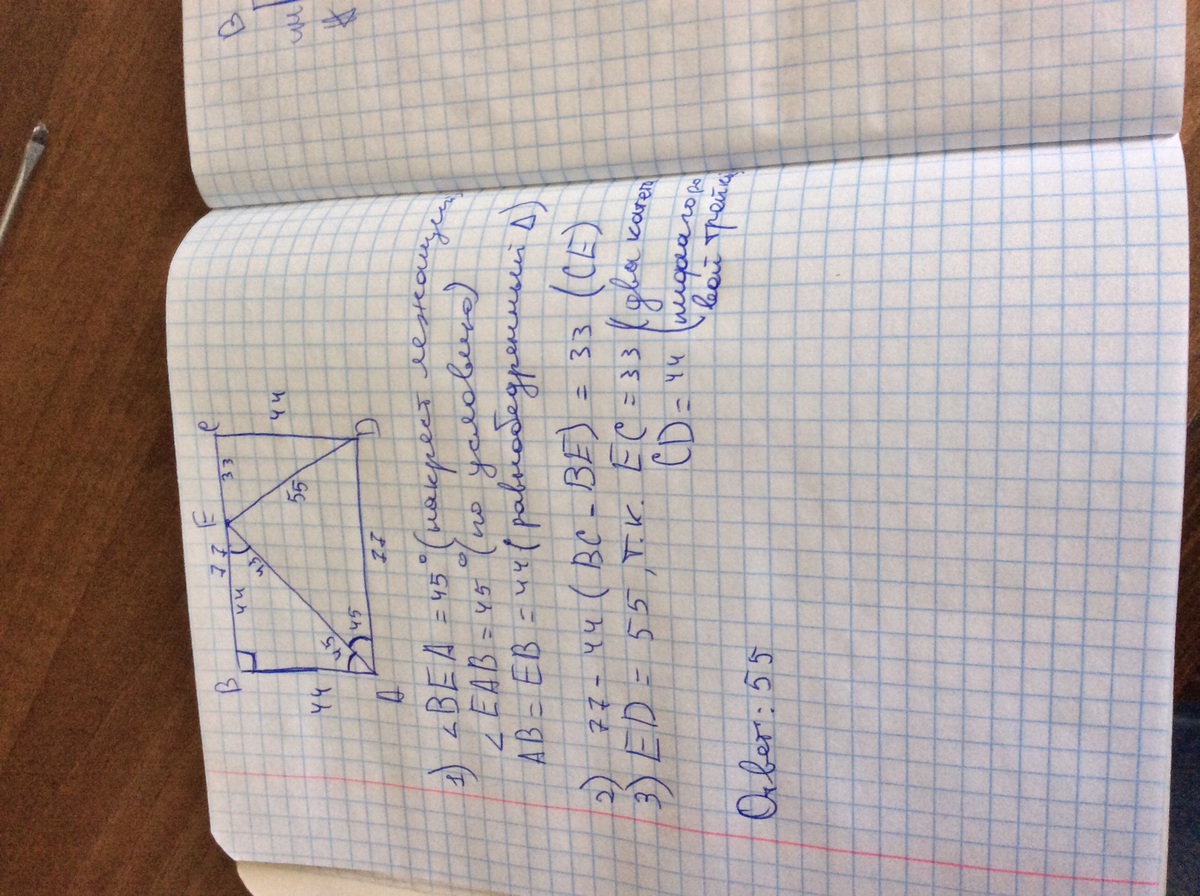 B 77 E C
44 33
45
44 55 44
45 45
A 77 D
1) ∠BEA = 45° (накрест лежащие)
∠EAB = 45° (по условию)
AB = EB = 44 (равнобедренный Δ)
2) 77 - 44 (BC - BE) = 33 (CE)
3) ED = 55, т.к. EC = 33 (два катета
CD = 44 (пифагоро
вой тройки
Ответ: 55